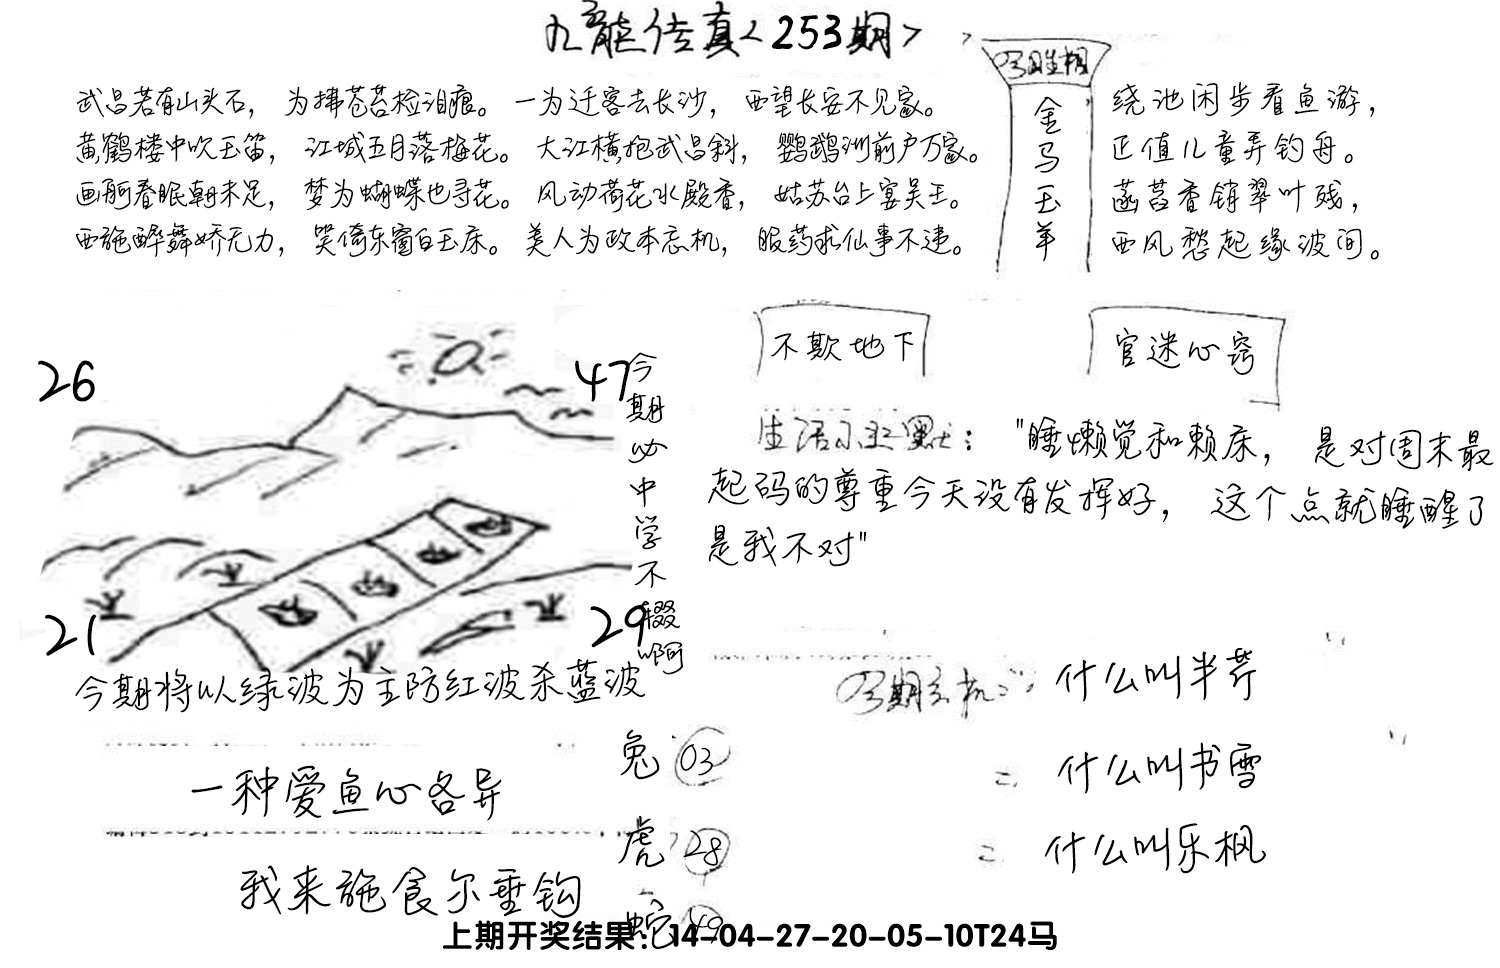 九龙传真<253期>
武昌若有山头石，为拂苍苔检泪痕。一为迁客去长沙，西望长安不见家。
黄鹤楼中吹玉笛，江城五月落梅花。大江横抱武昌斜，鹦鹉洲前户万家。
画舸春眠朝未足，梦为蝴蝶也寻花。风动荷花水殿香，姑苏台上宴吴王。
西施醉舞娇无力，笑倚东窗白玉床。美人为政本忘机，服药求仙事不违。
金马玉羊
绕池闲步看鱼游，
正值儿童弄钓舟。
菡萏香销翠叶残，
西风愁起缘波间。
不欺地下
官迷心窍
生活小幽默："睡懒觉和赖床，是对周末最
起码的尊重今天没有发挥好，这个点就睡醒了
是我不对"
26
47
21
29
今期必中学不辍啊
今期将以绿波为主防红波杀蓝波
一种爱鱼心各异
我来施食尔垂钩
兔 03
虎 28
蛇 49
今期玄机：什么叫半芹
什么叫书雪
什么叫乐枫
上期开奖结果：14-04-27-20-05-10T24马